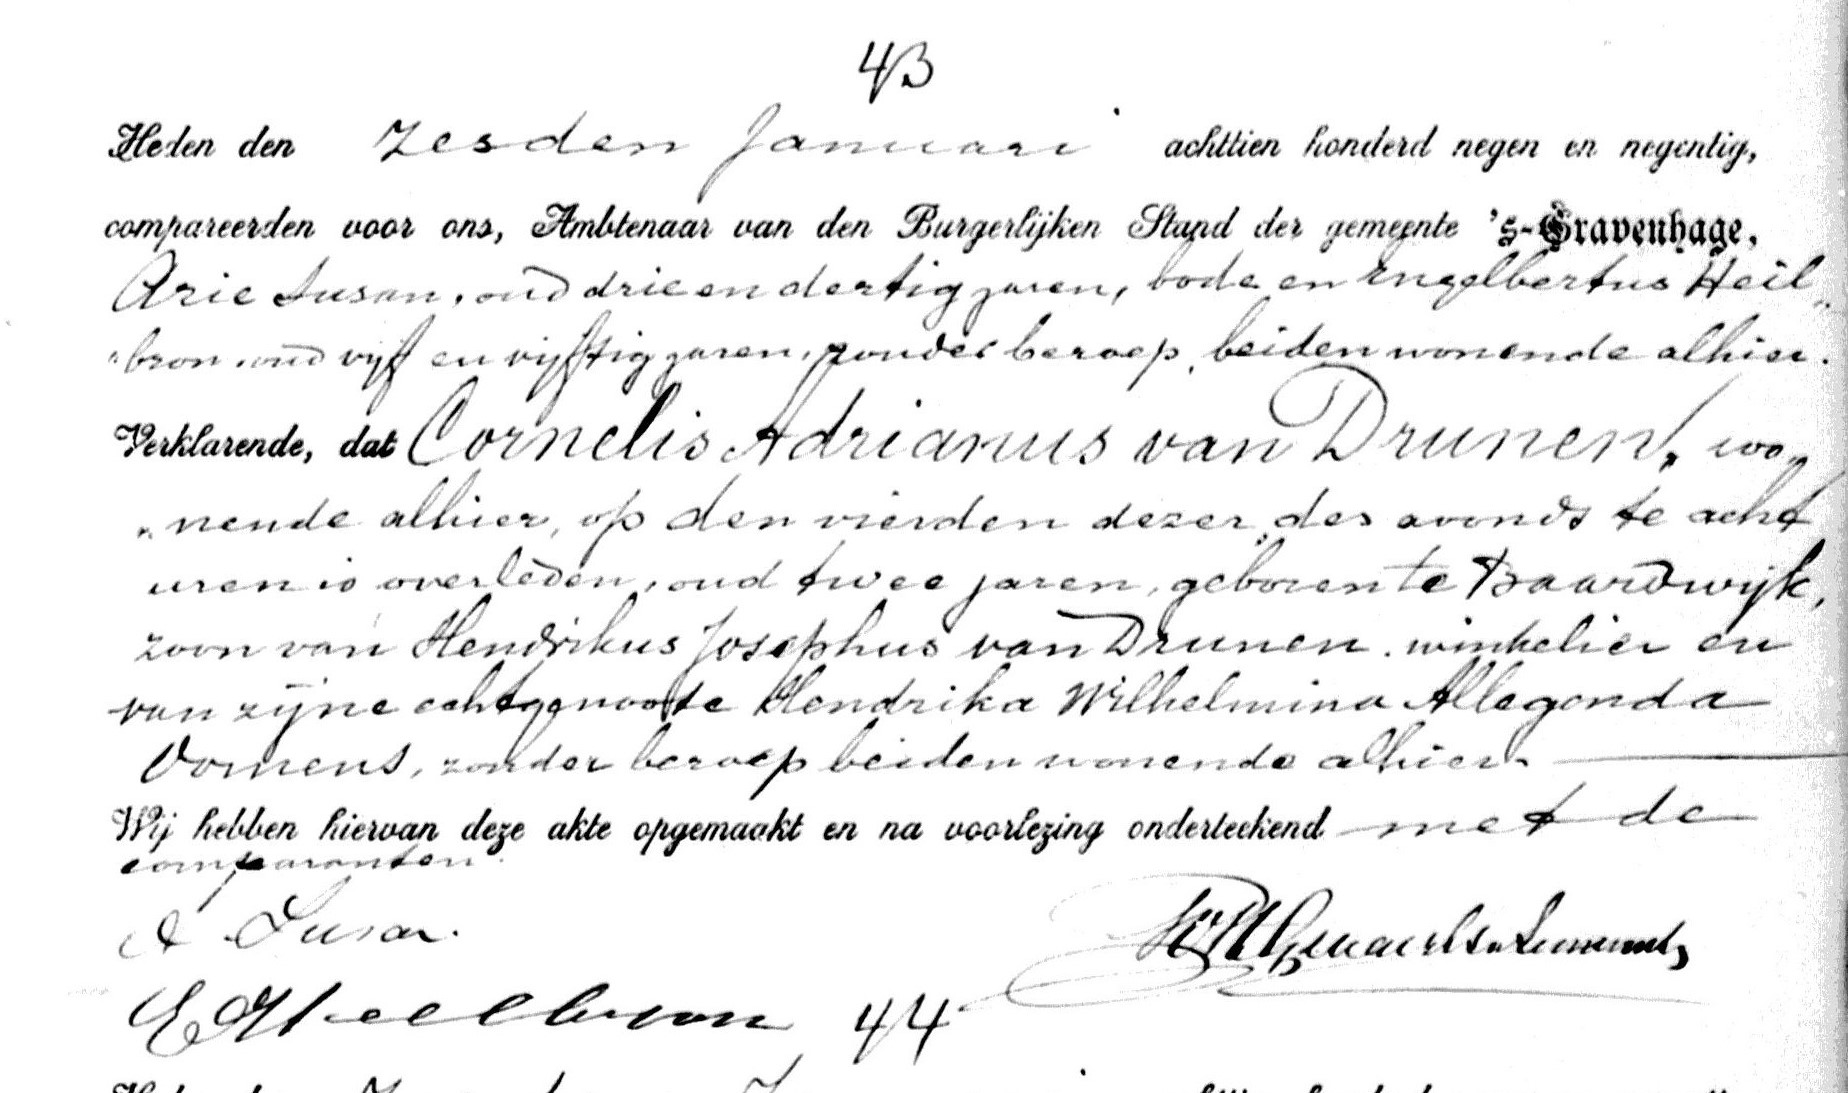 43
Heden den Zesden Januari achttien honderd negen en negentig,
compareerden voor ons, Ambtenaar van den Burgerlijken Stand der gemeente 's-Gravenhage,
Arie Susan, oud drie en dertig jaren, bode en Engelbertus Heil„
„bron, oud vijf en vijftig jaren, zonder beroep, beiden wonende alhier.
Verklarende, dat Cornelis Adrianus van Drunen, wo„
„nende alhier, op den vierden dezer, des avonds te acht
uren is overleden, oud twee jaren, geboren te Baardwijk,
zoon van Hendrikus Josephus van Drunen, winkelier en
van zijne echtgenoote Hendrika Wilhelmina Allegonda
Oomens, zonder beroep beiden wonende alhier.
Wij hebben hiervan deze akte opgemaakt en na voorlezing onderteekend met de
comparanten.
A Susan.
E Heilbron
44